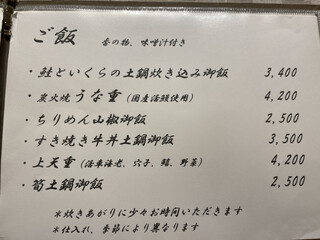 ご飯 香の物、味噌汁付き
・鮭といくらの土鍋炊き込み御飯 3,400
・炭火焼うな重(国産活鰻使用) 4,200
・ちりめん山椒御飯 2,500
・すき焼き牛丼土鍋御飯 3,500
・上天重(活車海老、穴子、鱚、野菜) 4,200
・筍土鍋御飯 2,500
*炊きあがりに少々お時間いただきます
*仕入れ、季節により異なります